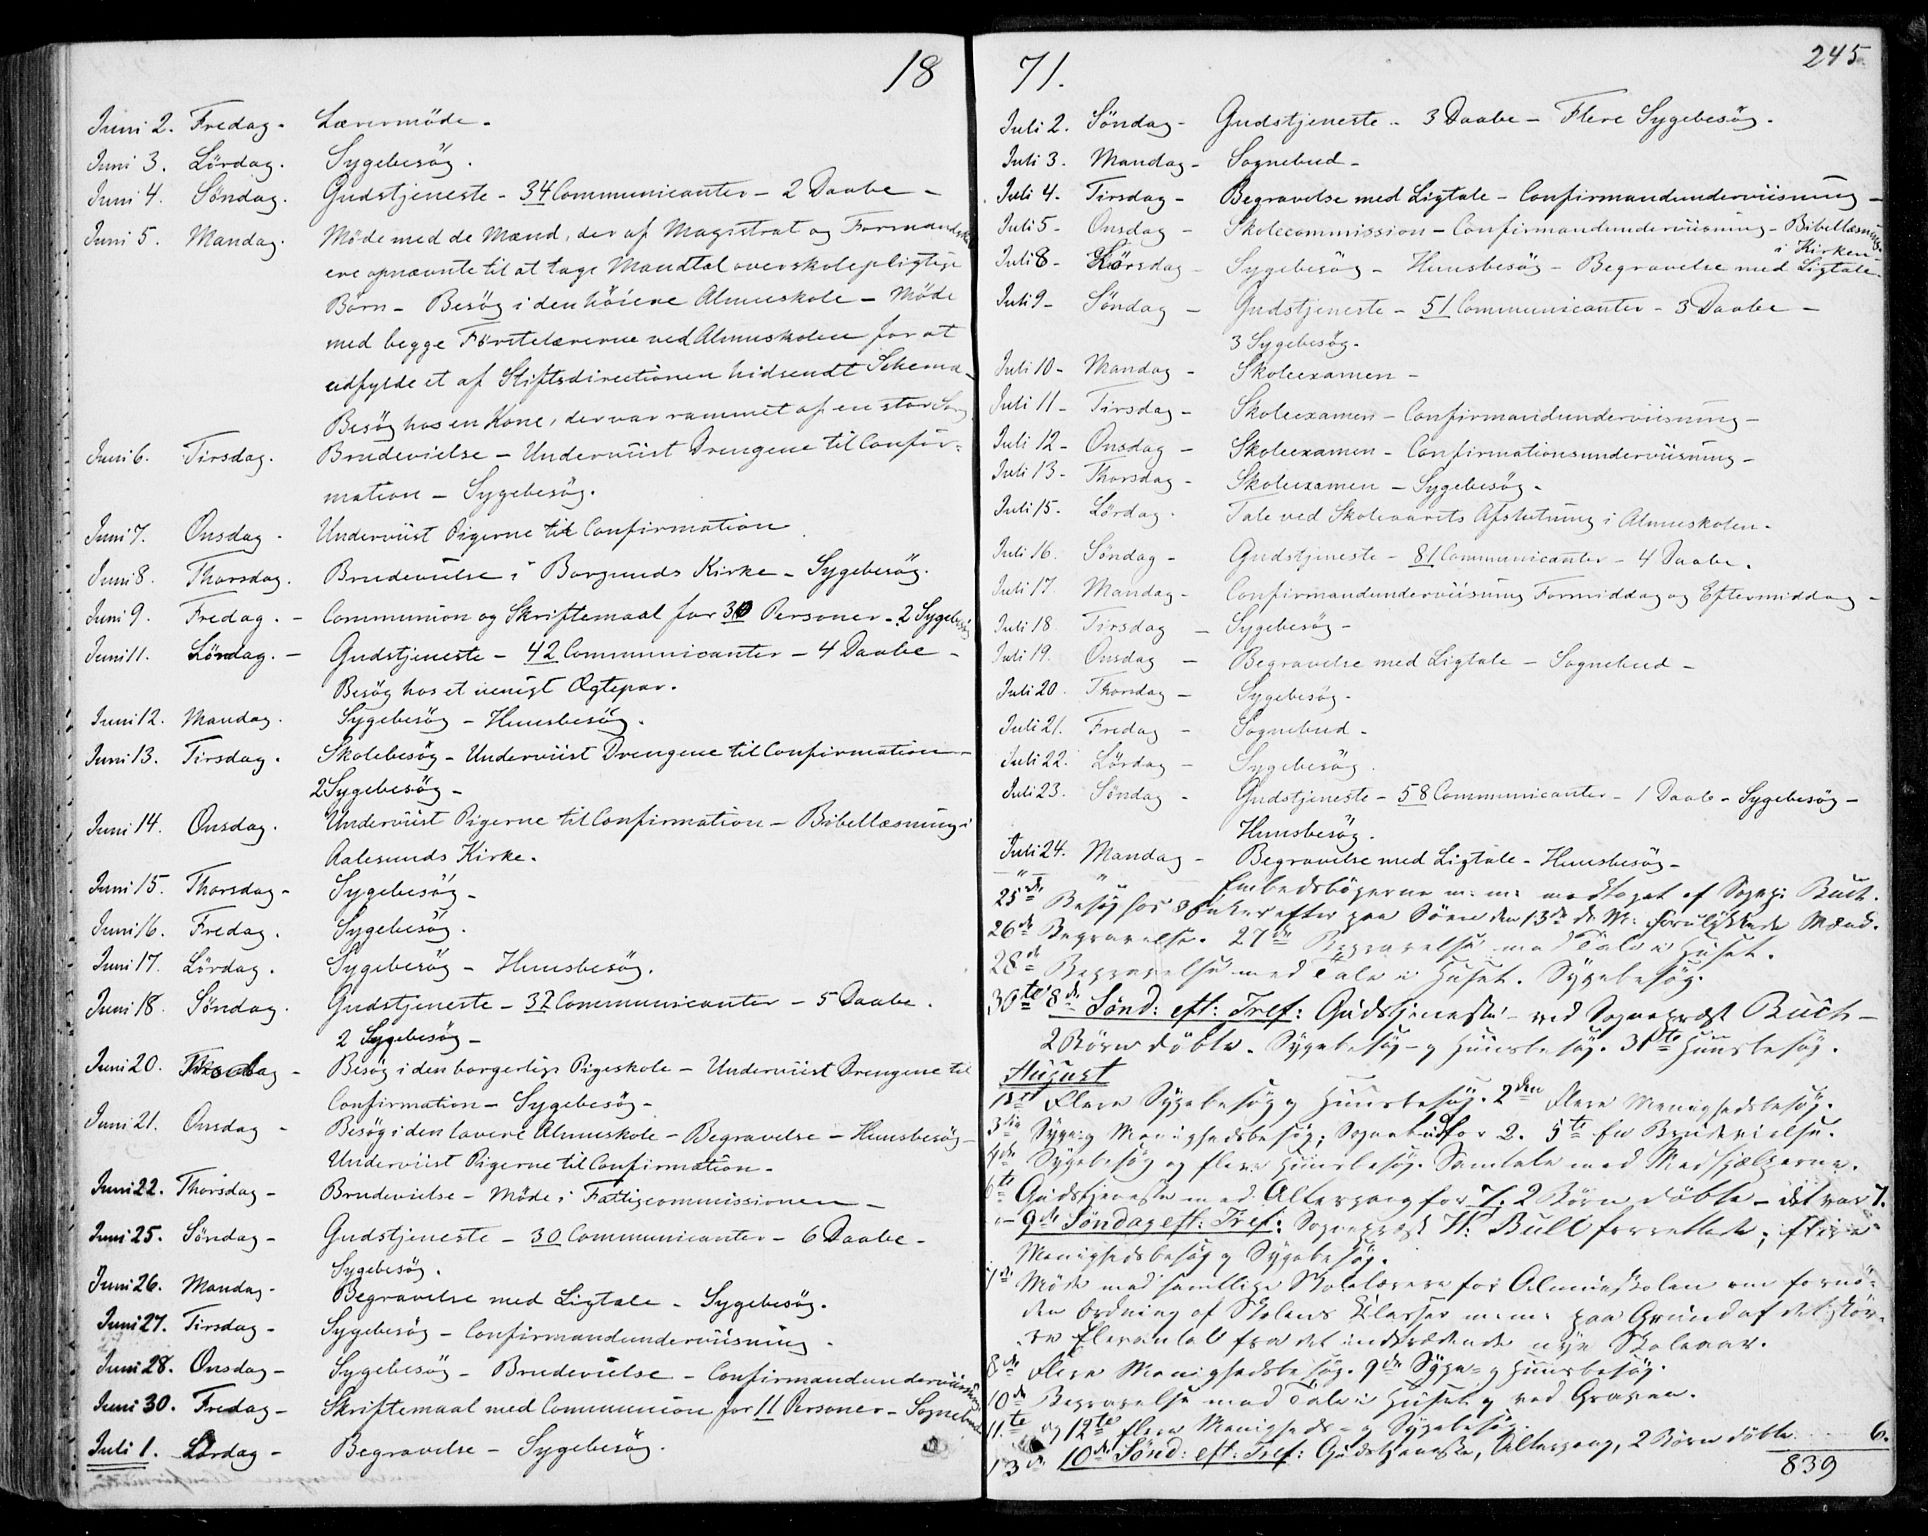 18
Juni 2. Fredag - Lærermöde -
Juni 3. Lördag. Sygebesög.
Juni 4. Söndag. Gudstjeneste - 34 Communicanter - 2 Daabe -
Juni 5. Mandag. Möde med de Mænd, der af Magistrat og Formandsk
ere opnævnte til at tage Mandtal over skolepligtige
Börn - Besög i den höiere Almueskole - Möde
med begge Förstelærerne ved Almueskolen for at
udfylde et af Stiftsdirectionen hidsendt Schema -
Besög hos en Kone, der var rammet af en stor Sorg
Juni 6. Tirsdag. Brudevielse - Underviist Drengene til Confir-
mation - Sygebesög.
Juni 7. Onsdag - Underviist Pigerne til Confirmation
Juni 8. Thorsdag. Brudevielse i Borgunds Kirke - Sygebesög.
Juni 9. Fredag. - Communion og Skriftemaal for 30 Personer - 2 Sygebesög
Juni 11. Söndag. - Gudstjeneste - 42 Communicanter - 4 Daabe -
Besög hos et uenigt Ægtepar.
Juni 12. Mandag. Sygebesög - Huusbesög.
Juni 13. Tirsdag. Skolebesög - Underviist Drengene til Confirmation -
2 Sygebesög -
Juni 14. Onsdag. Underviist Pigerne til Confirmation - Bibellæsning i
Aalesunds Kirke.
Juni 15. Thorsdag - Sygebesög -
Juni 16. Fredag. Sygebesög.
Juni 17. Lördag. Sygebesög - Huusbesög.
Juni 18. Söndag. Gudstjeneste - 37 Communicanter - 5 Daabe.
2 Sygebesög -
Juni 20. Tirsdag - Besög i den borgerlige Pigeskole - Underviist Drengene til
Confirmation - Sygebesög -
Juni 21. Onsdag - Besög i den lavere Almueskole - Begravelse - Huusbesög -
Underviist Pigerne til Confirmation -
Juni 22. Thorsdag - Brudevielse - Möde i Fattigcommissionen -
Juni 25. Söndag - Gudstjeneste - 30 Communicanter - 6 Daabe -
Sygebesög.
Juni 26. Mandag - Begravelse med Ligtale - Sygebesög.
Juni 27. Tirsdag - Sygebesög - Confirmandunderviisning.
Juni 28. Onsdag - Sygebesög - Brudevielse - Confirmandunderviisning
Juni 30. Fredag - Skriftemaal med Communion for 11 Personer - Sognebud
Juli 1. Lördag - Begravelse - Sygebesög.
71.
245
Juli 2. Söndag - Gudstjeneste - 3 Daabe - Flere Sygebesög.
Juli 3. Mandag - Sognebud -
Juli 4. Tirsdag - Begravelse med Ligtale - Confirmandunderviisning -
Juli 5 - Onsdag - Skolecommission - Confirmandunderviisning - Bibellæsning
i Kirken -
Juli 8 - Lörsdag - Sygebesög - Huusbesög - Begravelse med Ligtale -
Juli 9 - Söndag - Gudstjeneste - 51 Communicanter - 3 Daabe -
3 Sygebesög.
Juli 10 - Mandag - Skoleexamen -
Juli 11 - Tirsdag - Skoleexamen - Confirmandunderviisning -
Juli 12 - Onsdag - Skoleexamen - Confirmationsunderviisning -
Juli 13 - Thorsdag - Skoleexamen - Sygebesög -
Juli 15 - Lördag. Tale ved Skoleaarets Afslutning i Almueskolen -
Juli 16. Söndag - Gudstjeneste - 81 Communicanter - 4 Daabe.
Juli 17. Mandag - Confirmandunderviisning Formiddag og Eftermiddag -
Juli 18 Tirsdag - Sygebesög -
Juli 19. Onsdag - Begravelse med Ligtale - Sognebud -
Juli 20. Thorsdag - Sygebesög -
Juli 21. Fredag - Sognebud -
Juli 22. Lördag - Sygebesög.
Juli 23. Söndag - Gudstjeneste - 58 Communicanter - 1 Daab - Sygebesög -
Huusbesög.
Juli 24. Mandag - Begravelse med Ligtale - Huusbesög -
Embedsbögerne m. m. modtaget af Sognpr: Buch.
25de Besög hos 8 Enker efter paa Söen den 13de d: M: forulykkede Mænd.
26de Begravelse. 27de Begravelse med Tale i Huset.
28de Begravelse med Tale i Huset. Sygebesög.
30te 8de Sönd: eft: Tref: Gudstjeneste ved Sognepræst Buch -
2 Börn döbte. Sygebesög - g Huusbesög. 31te Huusbesög.
August
1ste Flere Sygebesög g Huusbesög. 2den Flere Menighedsbesög.
3die Syge- g Menighedsbesög; Sognebud for 2. 5te En Brudevielse.
4de Sygebesög og flere Huusbesög. Samtale med Medhjælperne.
6te Gudstjeneste med Altergang for 7. 2 Börn döbte - det var 7.
9de Söndag eft: Tref: Sognepræst H: Bull forrettede; flere
Menighedsbesög g Sygebesög.
7de Möde med samtlige Skolelærere for Almueskolen om fornö-
den Ordning af Skolens Klasser m. m. paa Grund af det stör-
re Elevantal fra det indtrædende nye Skoleaar.
8de Flere Menighedsbesög. 9de Syge- g Huusbesög.
10de Begravelse med Tale i Huset g ved Graven.
11te og 12te flere Menigheds- g Sygebesög.
13de 10de Sönd: eft: Tref: Gudstjeneste, Altergang, 2 Börn döbte 6.
839